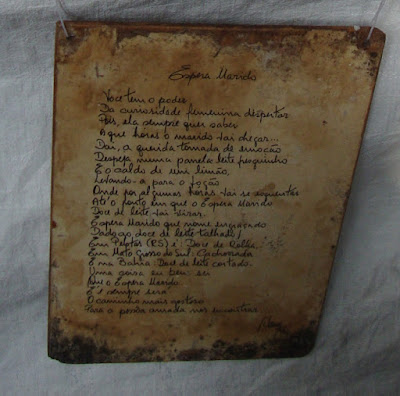 Espera Marido
Você tem o poder
Da curiosidade feminina despertar
Pois, ela sempre quer saber
A que horas o marido vai chegar...
Daí, a querida tomada de emoção
Despeja numa panela leite fresquinho
E o caldo de um limão,
Levando-a para o fogão
Onde por algumas horas vai se aquentar
Até o ponto em que o Espera Marido
Doce de leite vai virar.
Espera Marido que nome engraçado
Dado ao doce de leite talhado!
Em Pelotas (RS) é: Doce de
Em Mato Grosso do Sul: Cachorrada
E na Bahia: Doce de leite cortado.
Uma coisa eu bem sei
Que o Espera Marido
É e sempre será
O caminho mais gostoso
Para a pessoa amada nos